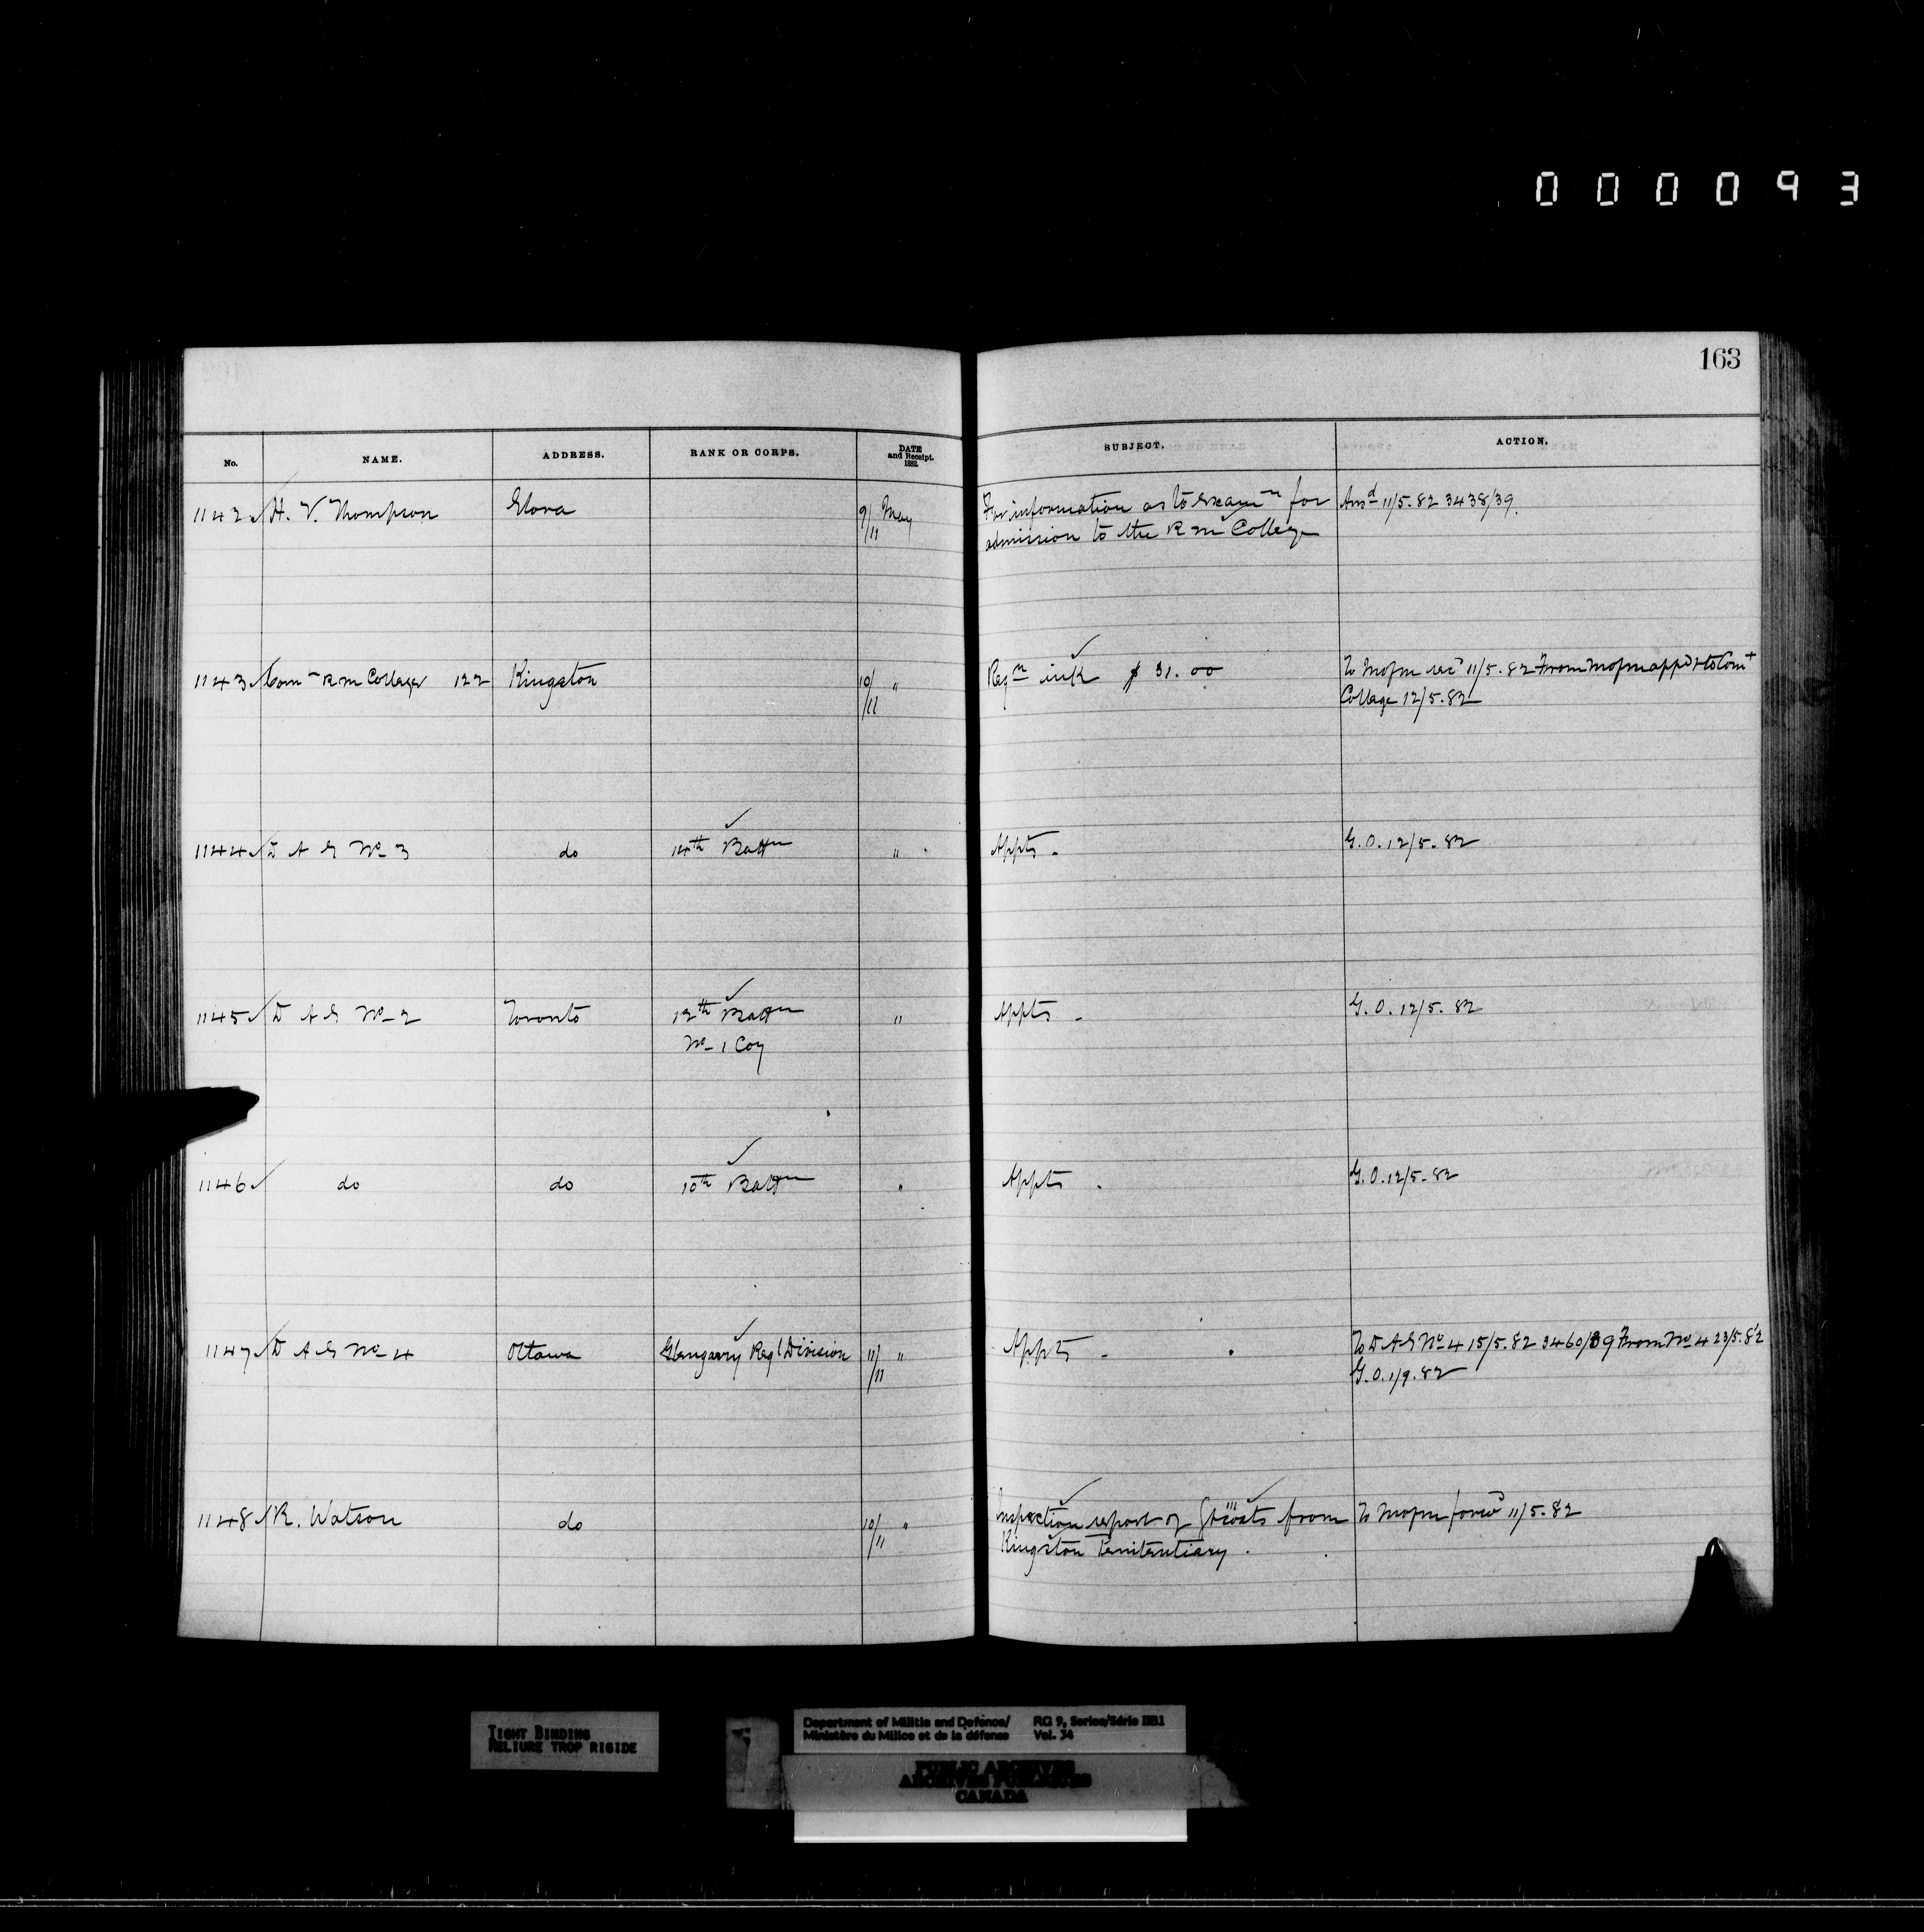 000093
163
No. NAME. ADDRESS. RANK OR CORPS. DATE and Receipt. 1882. SUBJECT. ACTION.
1142 H. V. Thompson Elora 9/11 May For information as to Examn for Ansd 11/5.82 3438/39.
admission to the R M College
1143 Comt R M College 122 Kingston 10/11 " Reqn ink $ 31.00 To M of M 11/5.82 From M of M appd & to Comt
College 12/5.82
1144 D A G No 3 do 14th Battn " Appts. G.O. 12/5.82
1145 D A G No 2 Toronto 12th Battn " Appts - G.O. 12/5.82
No 1 Coy
1146 do do 10th Battn " Appts. G.O. 12/5.82
1147 D A G No 4 Ottawa Glengarry Regl Division 11/11 " Appts - To D A G No 4 15/5.82 3460/39 From No 4 23/5.82
G.O. 1/9.82
1148 R. Watson do 10/11 " Inspection report of from To M of M forwd 11/5.82
Kingston Penitentiary.
TIGHT BINDING
RELIURE TROP RIGIDE
Department of Militia and Defence/ RG 9, Series/Série IIB1
Ministère du Milice et de la défense Vol. 34
PUBLIC ARCHIVES
ARCHIVES PUBLIQUES
CANADA